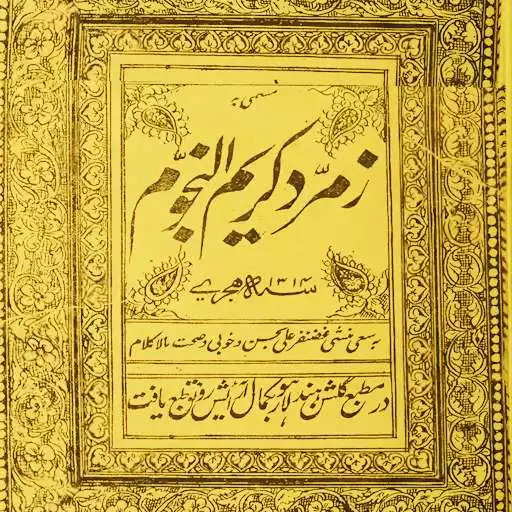 مسمی بہ
زمرّد کریم النجوّم
۱۳۱۴ سنہ ہجری
بہ سعی منشی غضنفر علی بحسن و خوبی و صحت مالاکلام
در مطبع گلشن ہند لاہور بکمال آرایش رونق طبع یافت